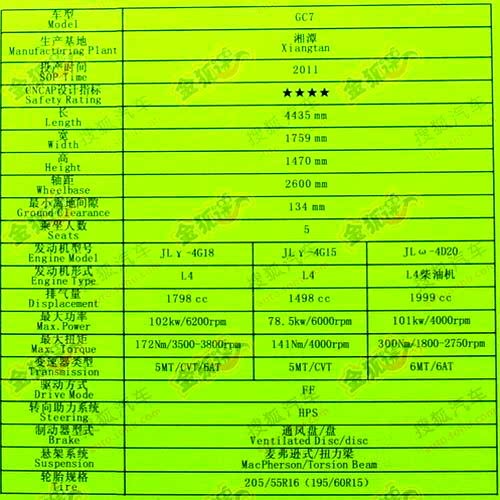 车型
Model
GC7
生产基地
Manufactoring Plant
湘潭
Xiangtan
投产时间
SOP Time
2011
CNCAP设计指标
Safety Rating
★★★★
长
Length
4435 mm
宽
Width
1759 mm
高
Height
1470 mm
轴距
Wheelbase
2600 mm
最小离地间隙
Ground Clearance
134 mm
乘坐人数
Seats
5
发动机型号
Engine Model
JLγ-4G18
JLγ-4G15
JLω-4D20
发动机形式
Engine Type
L4
L4
L4柴油机
排气量
Displacement
1798 cc
1498 cc
1999 cc
最大功率
Max.Power
102kw/6200rpm
78.5kw/6000rpm
101kw/4000rpm
最大扭矩
Max. Torque
172Nm/3500-3800rpm
141Nm/4000rpm
300Nm/1800-2750rpm
变速器类型
Transmission
5MT/CVT/6AT
5MT/CVT
6MT/6AT
驱动方式
Drive Mode
FF
转向助力系统
Steering
HPS
制动器型式
Brake
通风盘/盘
Ventilated Disc/disc
悬架系统
Suspension
麦弗逊式/扭力梁
MacPherson/Torsion Beam
轮胎规格
Tire
205/55R16 (195/60R15)
搜狐汽车
auto.sohu.com